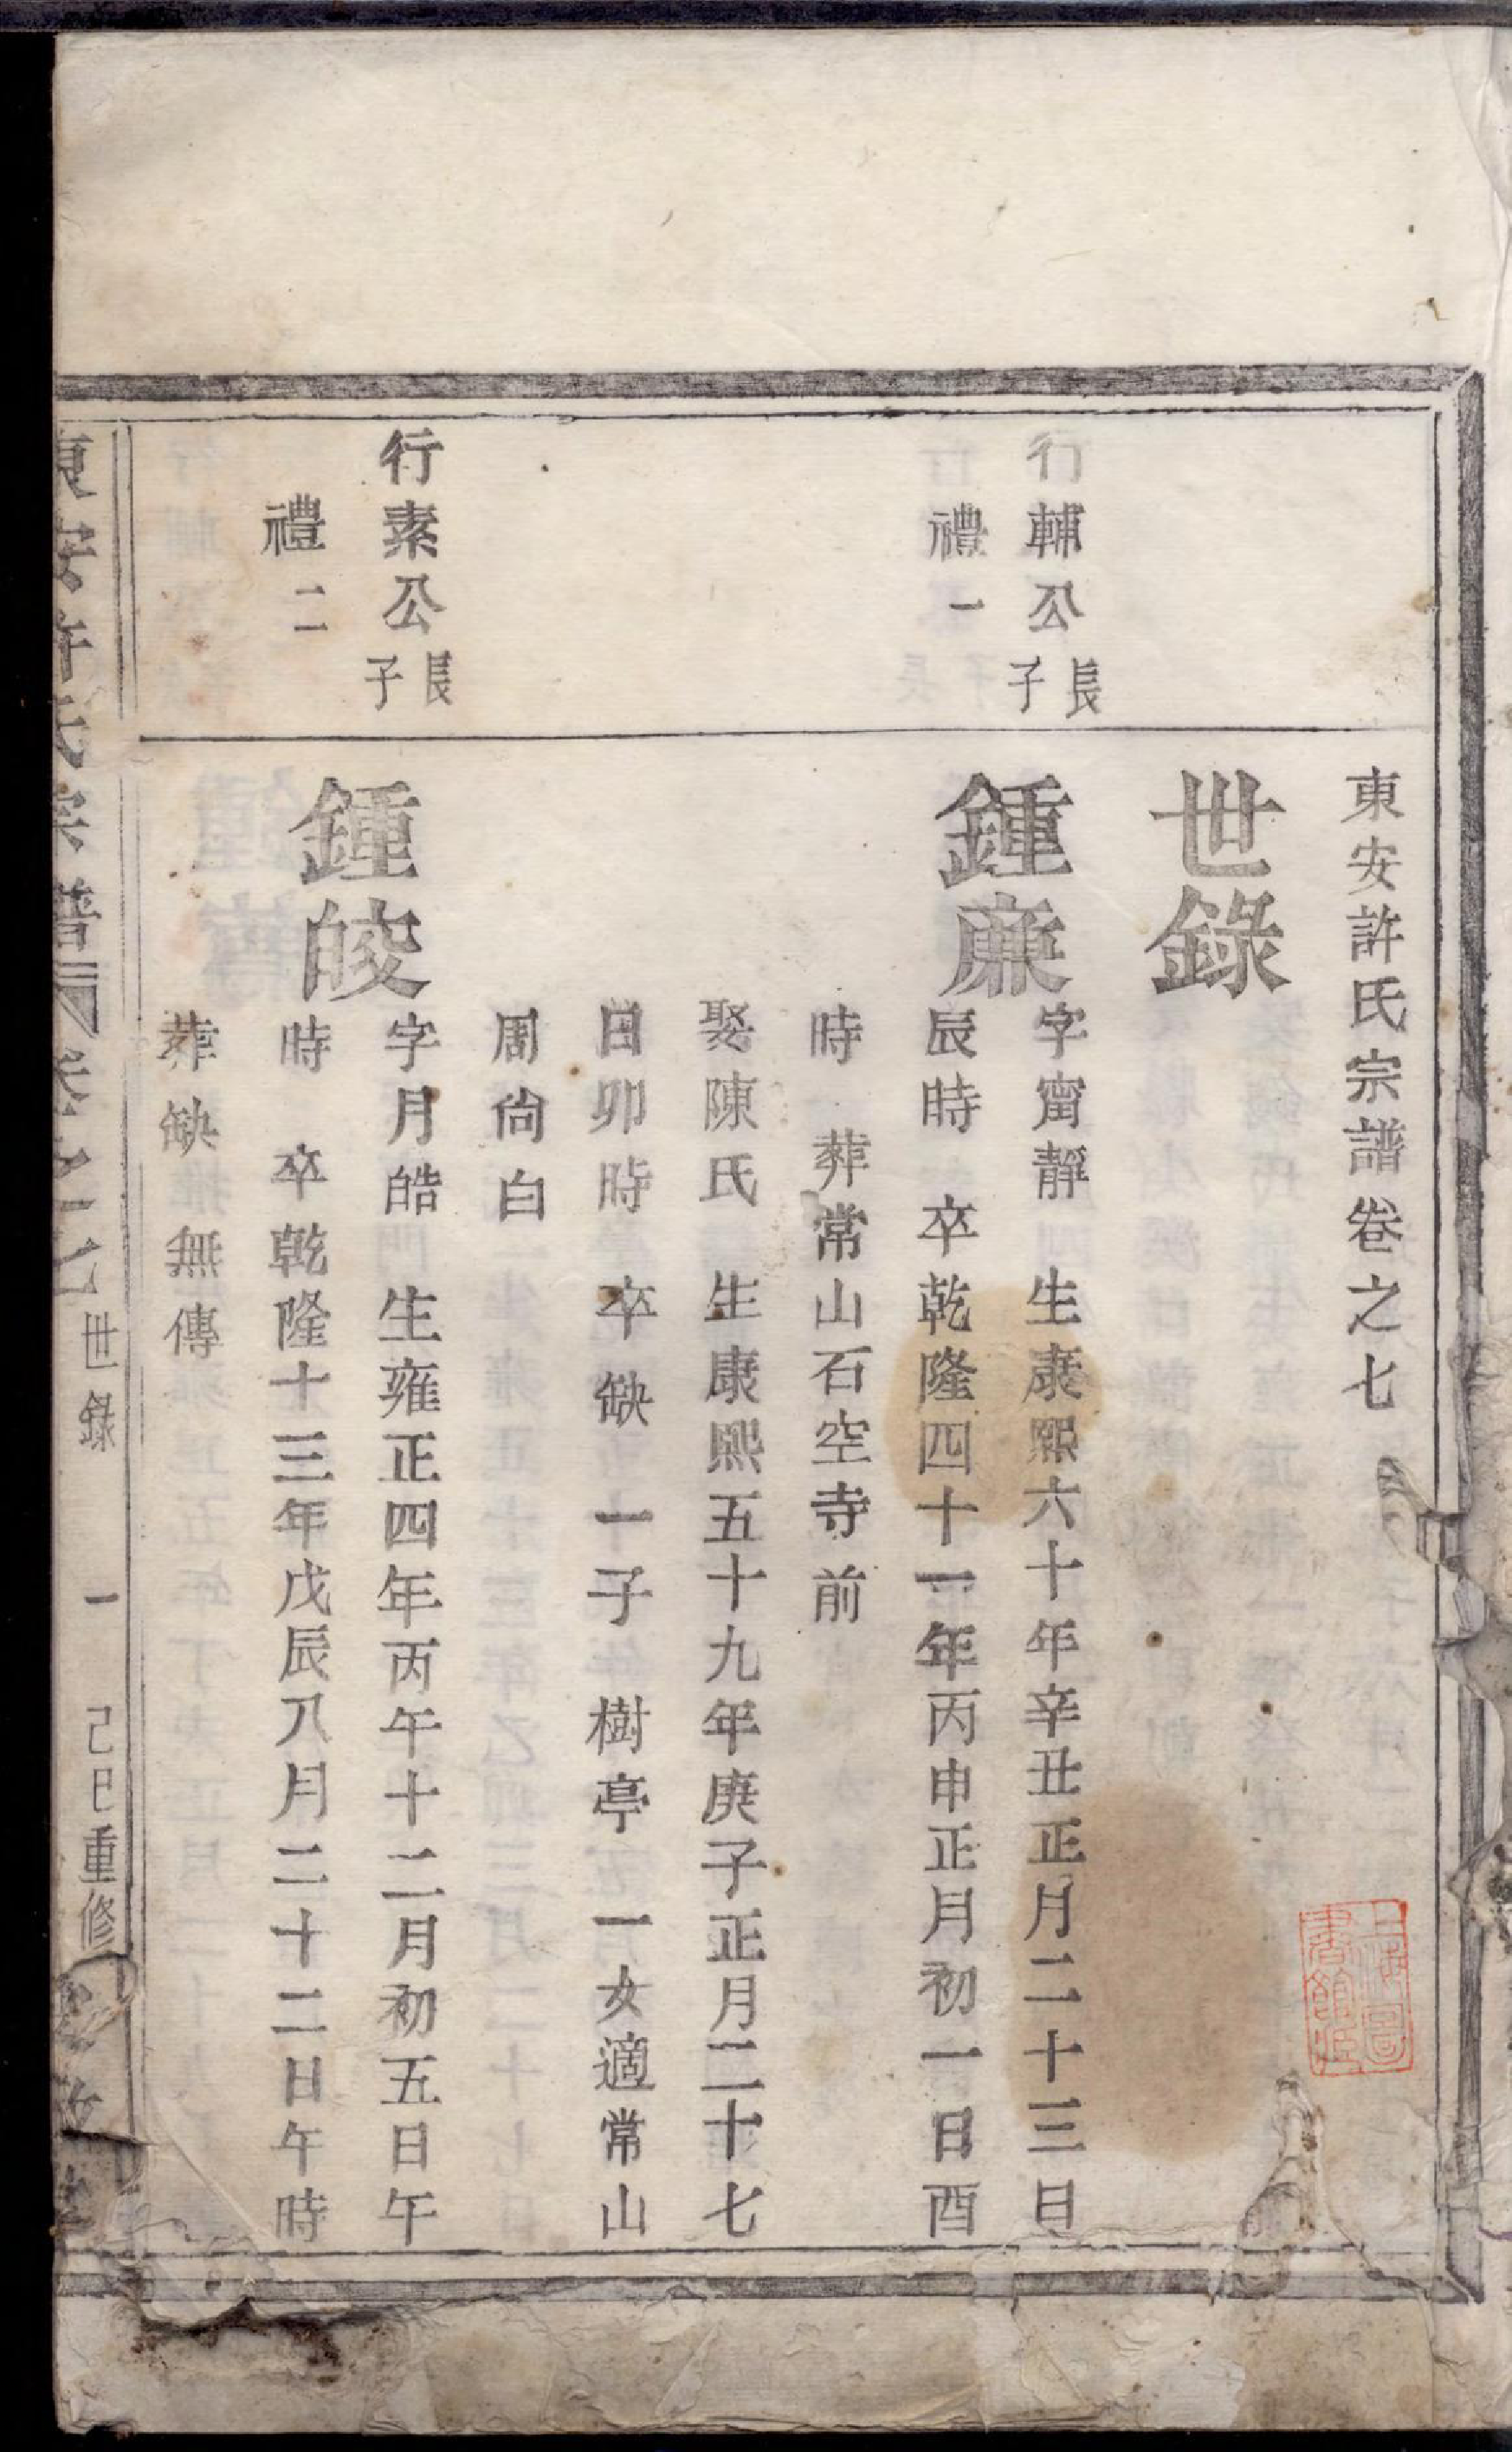 東安許氏宗譜卷之七
世錄
行輔公長子
禮一
鍾廉
字甯靜 生康熙六十年辛丑正月二十三日
辰時 卒乾隆四十一年丙申正月初一日酉
時 葬常山石空寺前
娶陳氏 生康熙五十九年庚子正月二十七
日卯時 卒缺 一子 樹亭 一女適常山
周尙白
行素公長子
禮二
鍾皎
字月皓 生雍正四年丙午十二月初五日午
時 卒乾隆十三年戊辰八月二十二日午時
葬缺 無傳
東安許氏宗譜 卷之七 世錄 一 己巳重修
上海圖書館藏